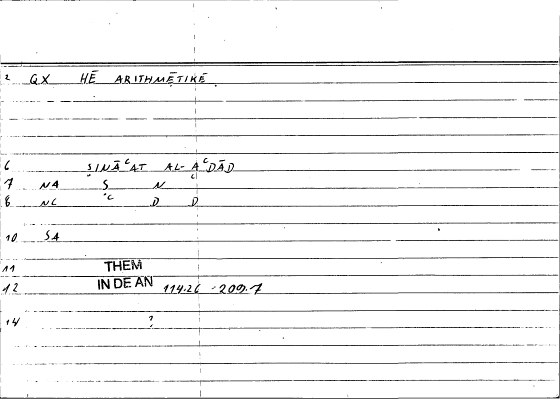 2 GX HĒ ARITHMĒTIKĒ
6 ṢINĀʿAT AL-AʿDĀD
7 NA Ṣ N
8 NC ʿC D D
10 SA
11 THEM
12 IN DE AN 114.26 - 209.7
14 ?